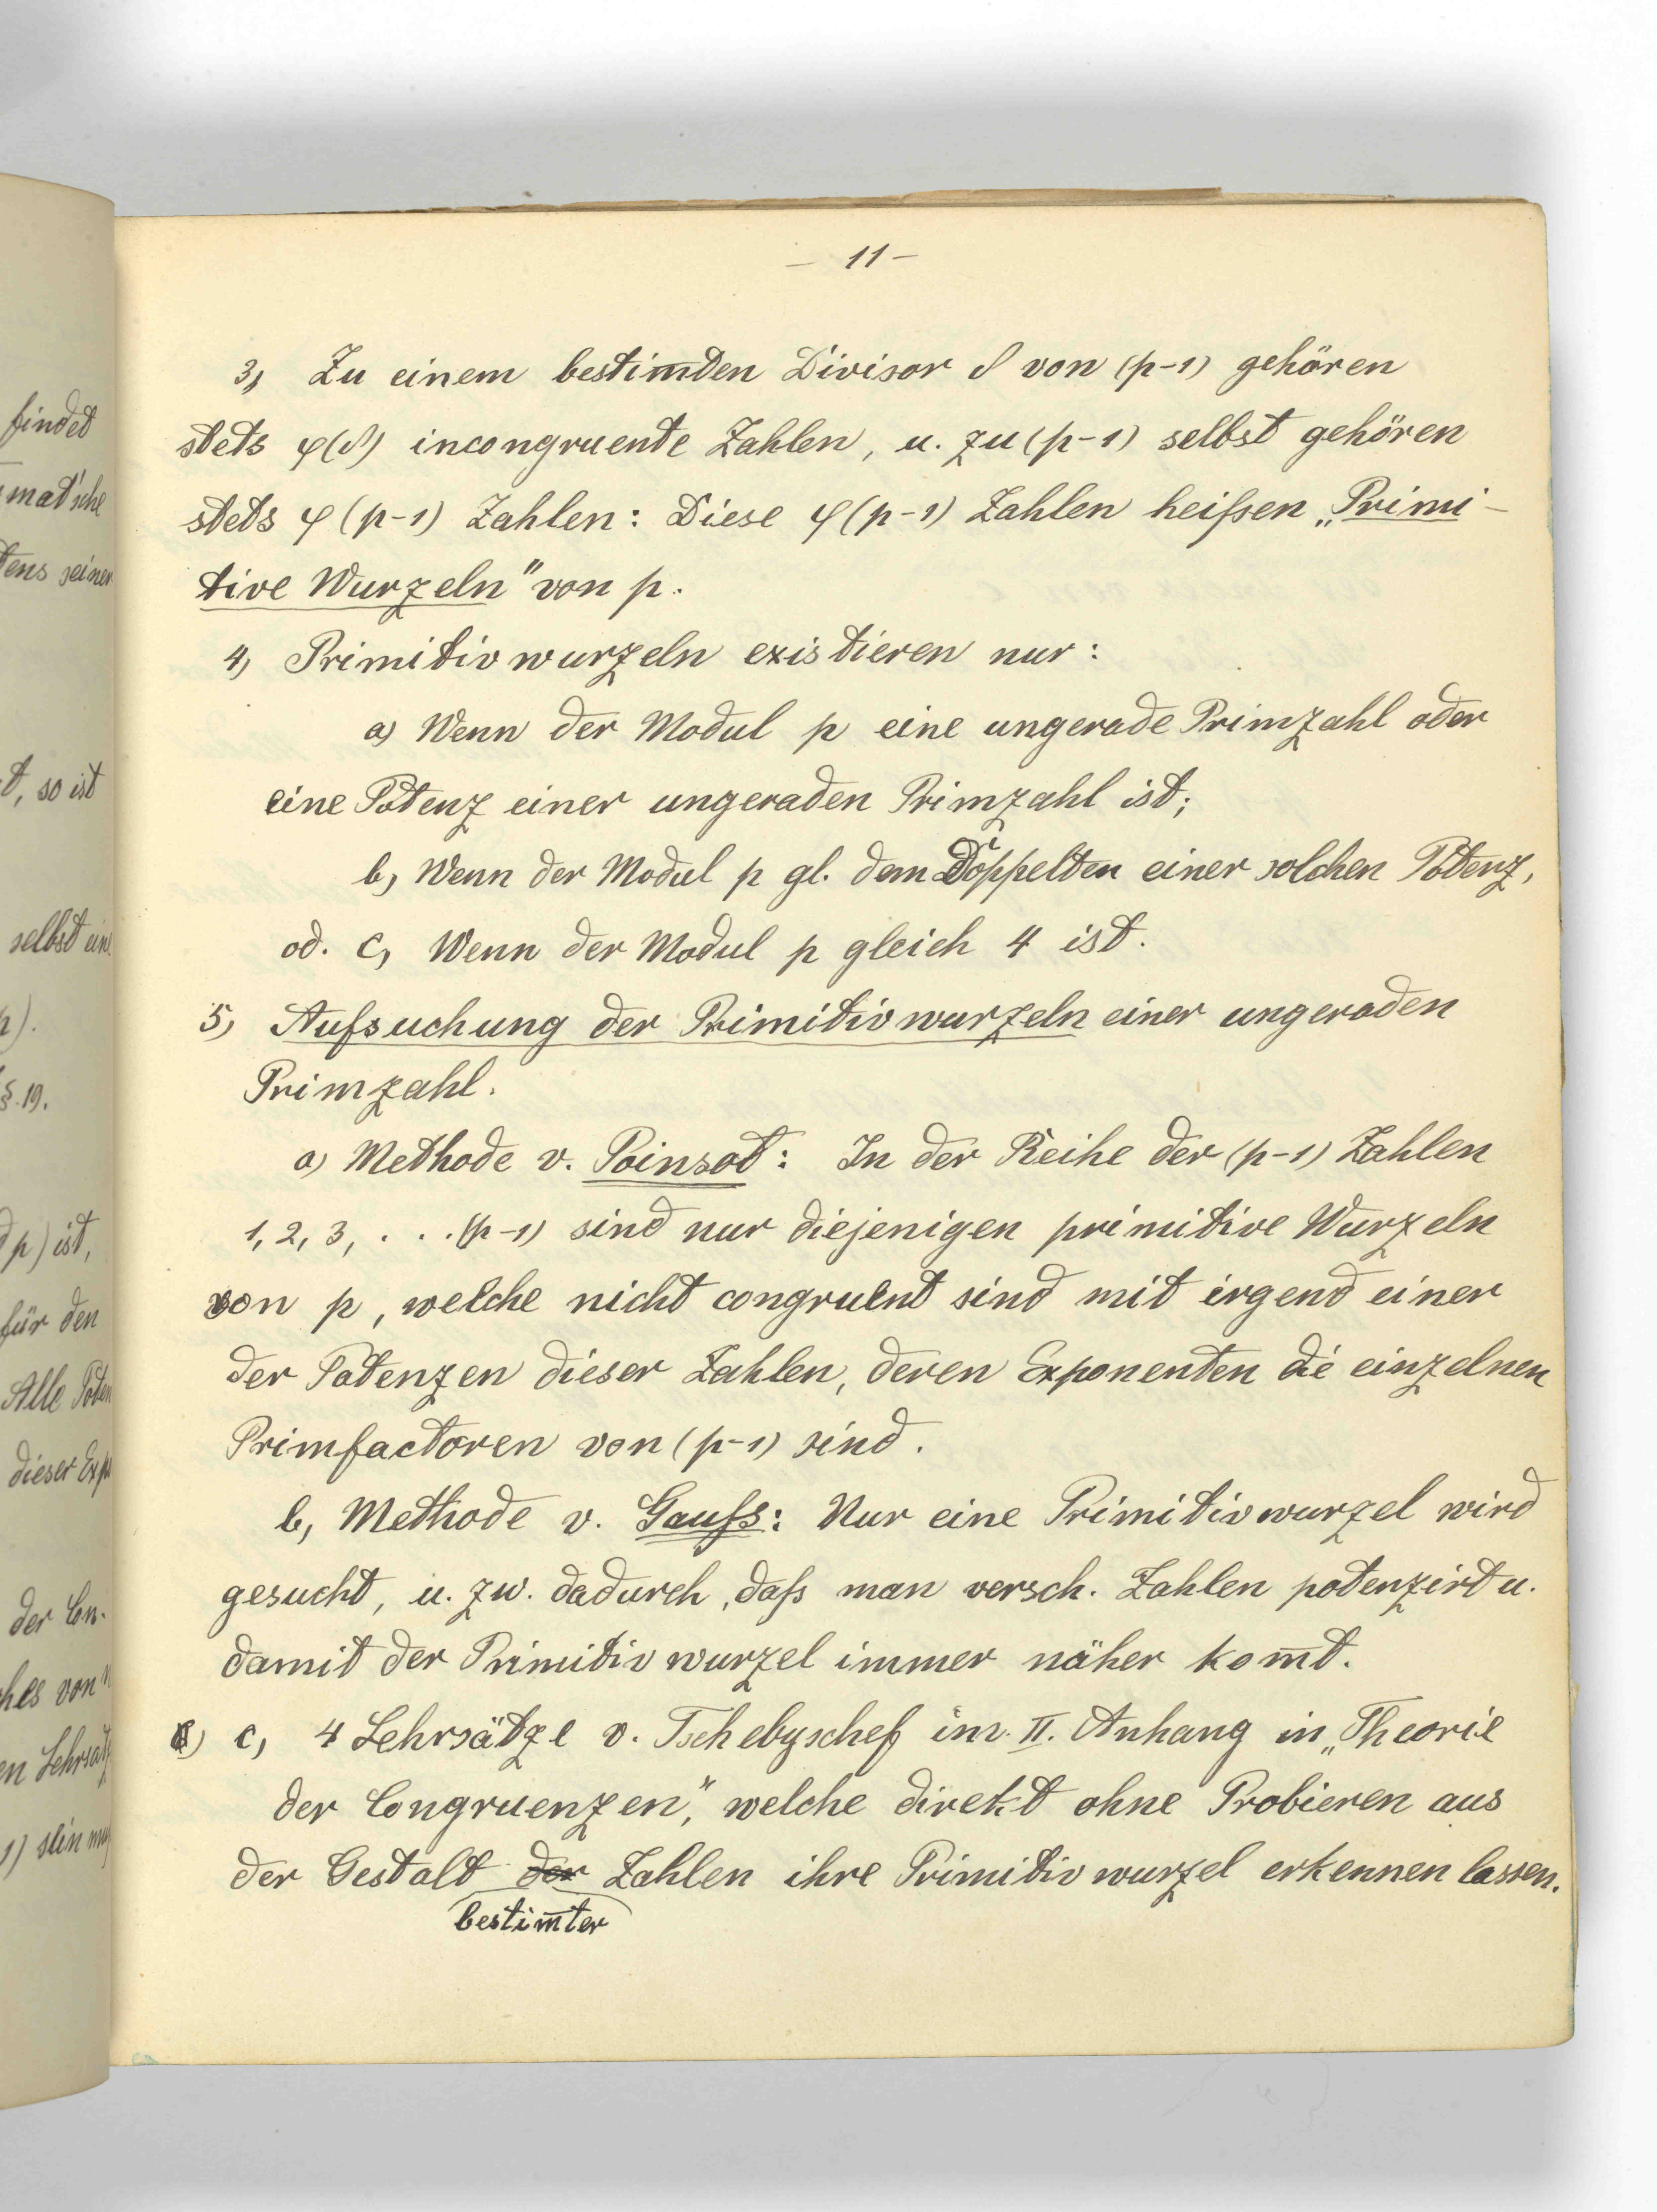 — 11 —
3, Zu einem bestim̅ten Divisor δ von (p-1) gehören
stets φ(δ) incongruente Zahlen, u. zu (p-1) selbst gehören
stets φ(p-1) Zahlen: Diese φ(p-1) Zahlen heißen „Primi-
tive Wurzeln" von p.
4, Primitivwurzeln existieren nur:
a) Wenn der Modul p eine ungerade Primzahl oder
eine Potenz einer ungeraden Primzahl ist;
b, Wenn der Modul p gl. dem Doppelten einer solchen Potenz,
od. c, Wenn der Modul p gleich 4 ist.
5, Aufsuchung der Primitivwurzeln einer ungeraden
Primzahl.
a) Methode v. Poinsot: In der Reihe der (p-1) Zahlen
1, 2, 3, . . . (p-1) sind nur diejenigen primitive Wurzeln
von p, welche nicht congruent sind mit irgend einer
der Potenzen dieser Zahlen, deren Exponenten die einzelnen
Primfactoren von (p-1) sind.
b, Methode v. Gauß: Nur eine Primitivwurzel wird
gesucht, u. zw. dadurch, daß man versch. Zahlen potenzirt u.
damit der Primitivwurzel immer näher kom̅t.
c, 4 Lehrsätze v. Tschebyschef im II. Anhang in „Theorie
der Congruenzen", welche direkt ohne Probieren aus
der Gestalt der Zahlen ihre Primitivwurzel erkennen lassen.
bestim̅ter
findet
mat'sche
tens seiner
t, so ist
selbst ein
§. 19.
p) ist,
für den
Alle Poten
dieser Exp
der Con-
hes von
en Lehrsatz
1) sein